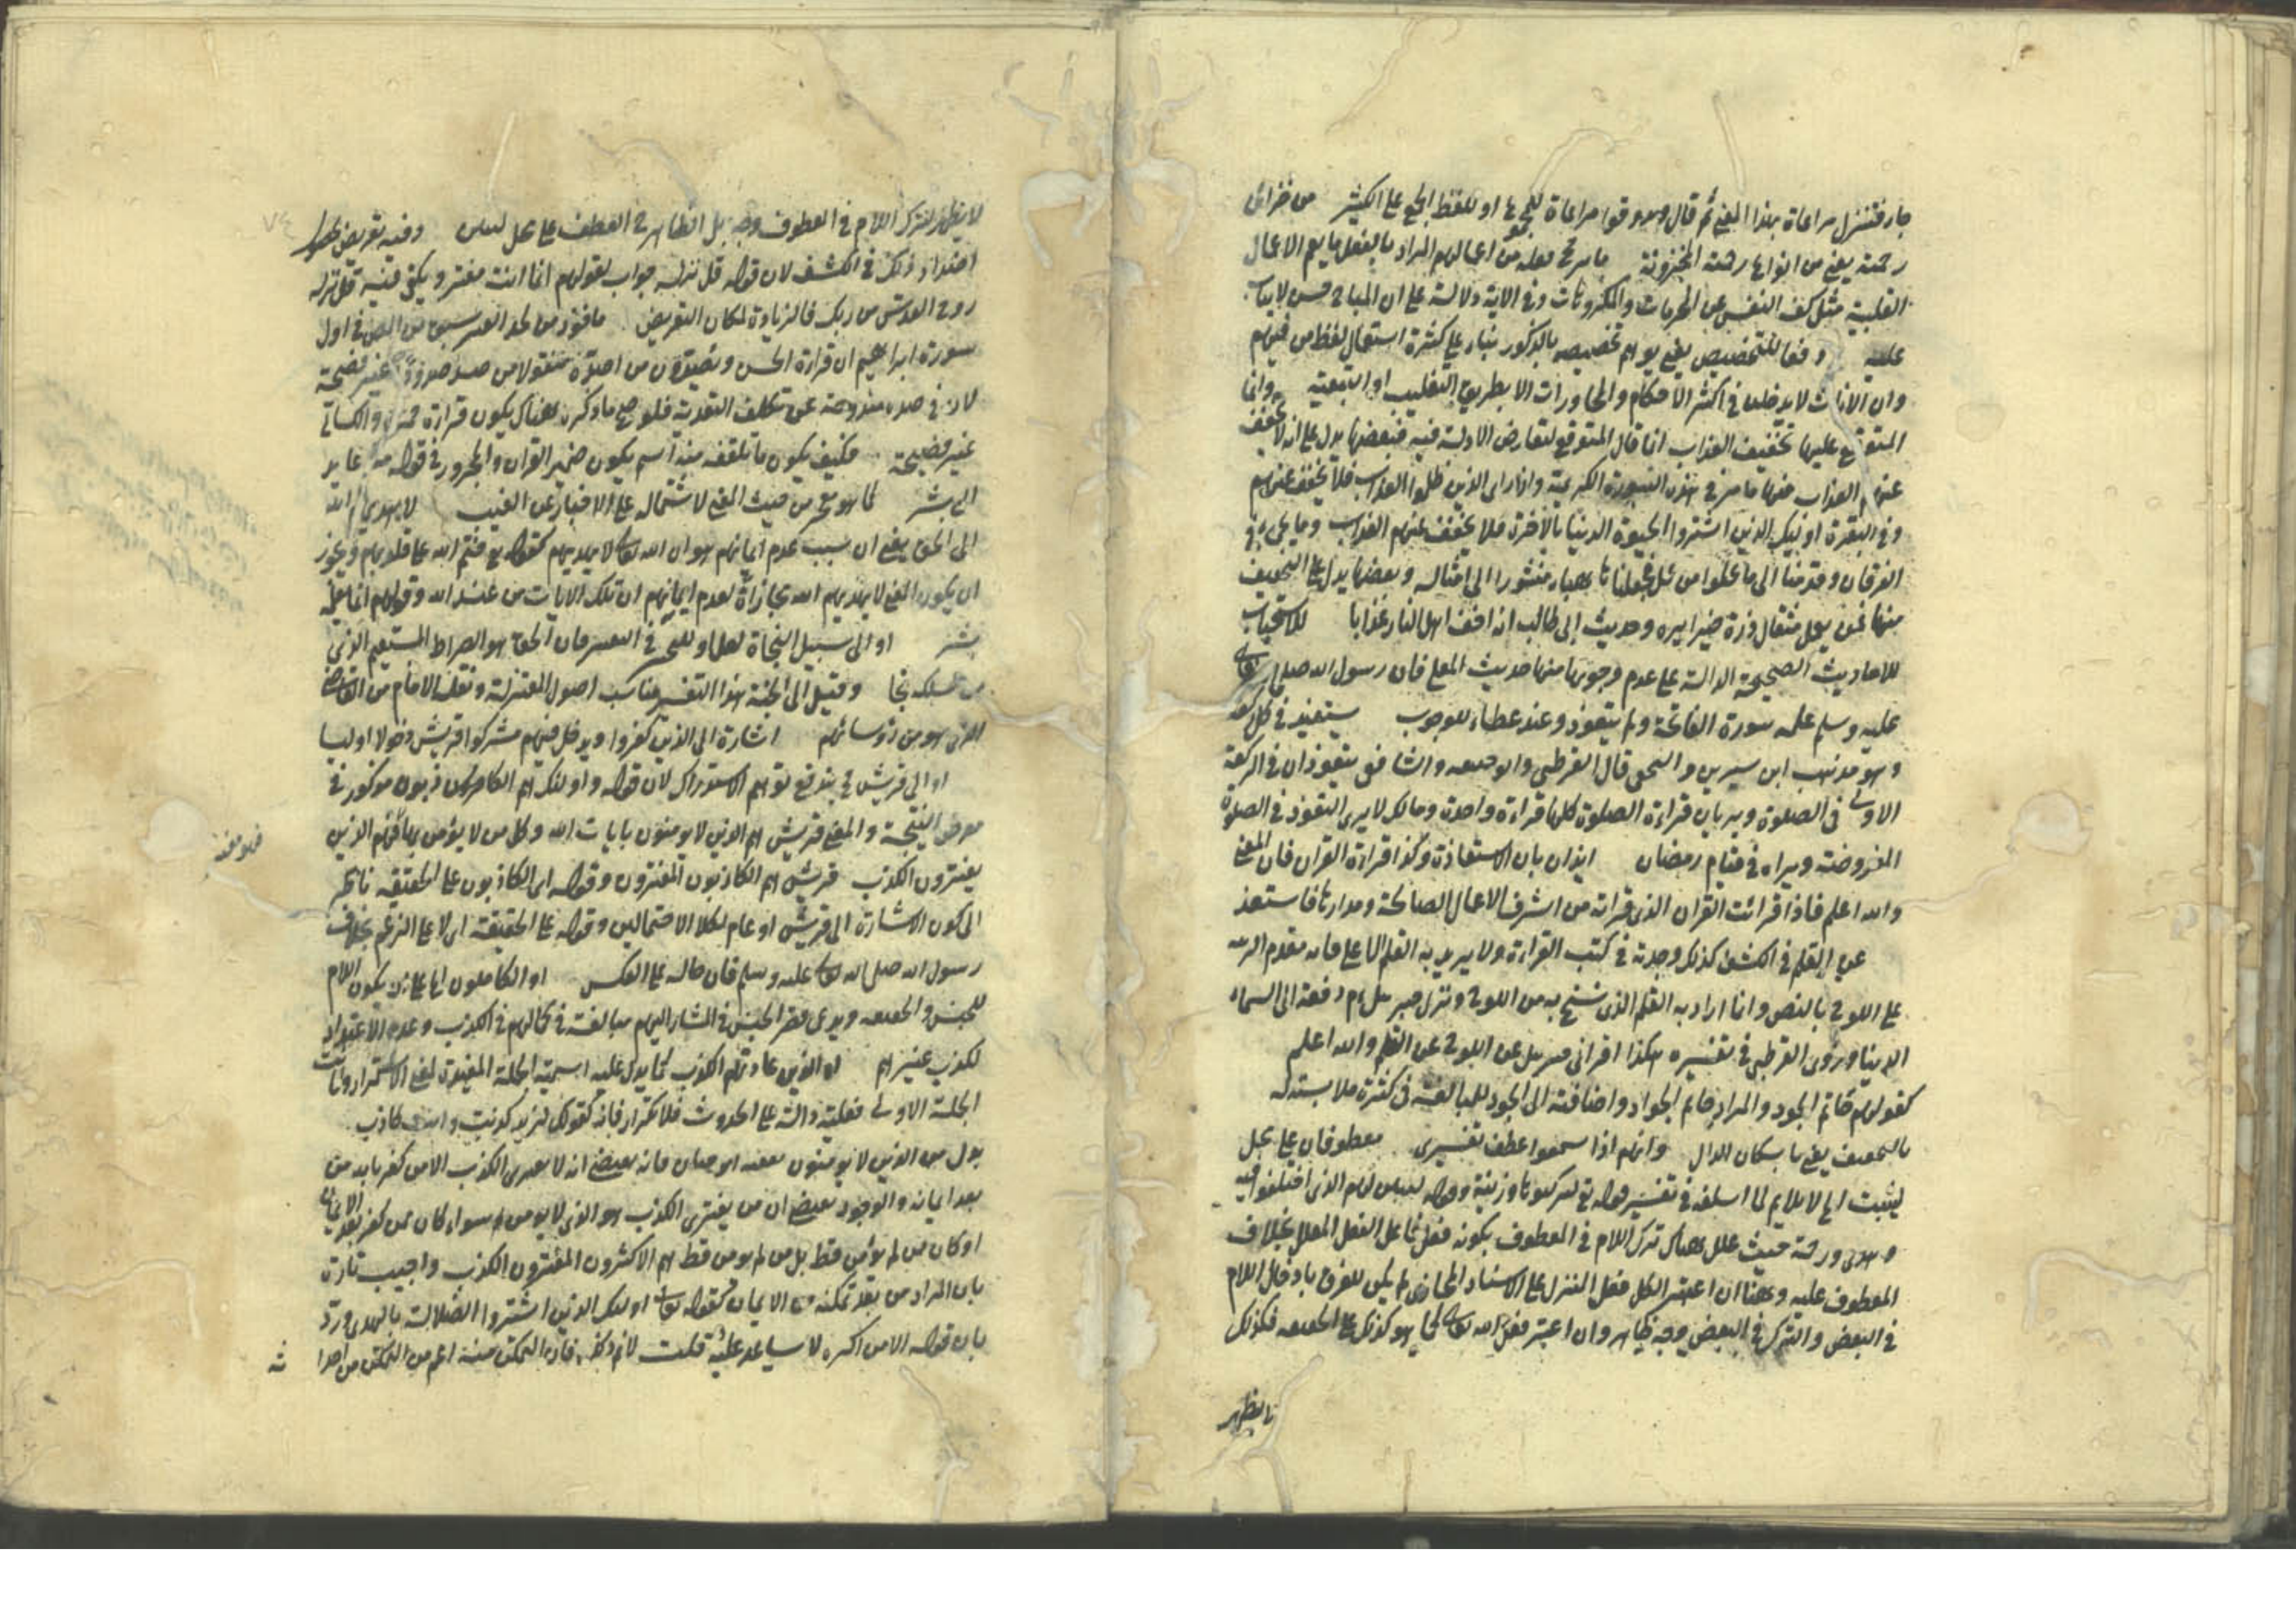 جار فتنزل مراعاة بهذا المعنى ثم قال وهو وقوا مراعاة للمعنى او للفظ الجمع على الكثير من خزائن
رحمته يعنى من انواعها رحمته المخزونة ما من اعمالهم المراد بالفعل ما يعم الاعمال
القلبية مثل كف النفس عن المحرمات والمكروهات وفى الاية دلالة على ان المباح حسن لا يثاب
عليه دفعا للتخصيص يعنى يوهم تخصيصه بالذكور بناء على كثرة استعمال لفظ من فيهم
وان الاناث لا يدخلن فى اكثر الاحكام والمحاورات الا بطريق التغليب او التبعية وانما
المتوقع عليها تخفيف العذاب انما قال المتوقع لتعارض الادلة فيه فبعضها يدل على انه لا يخفف
عنهم العذاب منها ما مر فى هذه السورة الكريمة واذا راى الذين ظلموا العذاب فلا يخفف عنهم
وفى البقرة اولئك الذين اشتروا الحيوة الدنيا بالآخرة فلا يخفف عنهم العذاب وما يجئ فى
الفرقان وقدمنا الى ما عملوا من عمل فجعلناه هباء منثورا الى امثاله وبعضها يدل على التخفيف
منها فمن يعمل مثقال ذرة خيرا يره وحديث ابى طالب انه اخف اهل النار عذابا للاستحباب
للاحاديث الصحيحة الدالة على عدم وجوبها منها حديث المعلى فان رسول الله صلى الله تعالى
عليه وسلم علمه سورة الفاتحة ولم يتعوذ وعند عطاء للوجوب يستعيذ فى كل ركعة
وهو مذهب ابن سيرين والنخعى قال القرطبى وابو حنيفه والشافعى يتعوذان فى الركعة
الاولى فى الصلوة ويريان قراءة الصلوة كلها قراءة واحدة ومالك لا يرى التعوذ فى الصلوة
المفروضة ويراه فى قيام رمضان ايذان بان الاستعاذة وكذا قراءة القرآن فان المعنى
والله اعلم فاذا قرائت القران الذى قراته من اشرف الاعمال الصالحة ومدارها فاستعذ
عن القلم فى الكشف كذلك وجدته فى كتب القراءة ولا يريد به القلم الاعلى فانه مقدم الرتبة
على اللوح بالنص وانما اراد به القلم الذى نسخ به من اللوح ونزل جبريل عم دفعة الى السماء
الدنيا وروى القرطبى فى تفسيره هكذا اقرانى جبريل عن اللوح عن القلم والله اعلم
كقولهم حاتم الجود والمراد حاتم الجواد واضافته الى الجود للمبالغة فى كثرة ملابسته له
بالتخفيف يعنى باسكان الدال وانهم اذا سمعوا عطف تفسيرى معطوفان على محل
ليثبت اى لا يلايم لما اسلفه فى تفسير قوله تع لتركبوها وزينة وقوله لتبين لهم الذى اختلفوا فيه
وهدى ورحمة حيث علل هناك ترك اللام فى المعطوف بكونه فعل فاعل الفعل المعلل بخلاف
المعطوف عليه وههنا ان اعتبر الكل فعل المنزل على الاسناد المجازى لم يكن للفرق بادخال اللام
فى البعض والترك فى البعض وجه ظاهر وان اعتبر فعل الله تعالى كما هو كذلك على الحقيقه فكذلك
لا يظهر
لا يظهر لترك اللام فى المعطوف وجه بل الظاهر ح العطف على محل ليثبت وفيه تعريض بحصول
اضداد ذلك فى الكشف لان قوله قل نزله جواب لقولهم انما انت مفتر ويكفى فيه قل نزله
روح القدس من ربك فالزيادة لمكان التعريض ماخوذ من لحد القبر سبق من المص فى اول
سورة ابراهيم ان قراءة الحسن ويصدون من اصده منقولا من صد صدودا غير فصيحة
لان فى صده مندوحة عن تكلف التعدية فلو صح ما ذكره هناك يكون قراءة حمزة والكسائى
غير فصيحة فكيف يكون ما تلقفه منه اسم يكون ضمير القران والمجرور فى قوله منه عايد
الى بشر كما هو معجز من حيث المعنى لاشتماله على الاخبار عن الغيب لا يهديهم الله
الى الحق يعنى ان سبب عدم ايمانهم هو ان الله تعالى لا يهديهم كقوله تع ختم الله على قلوبهم ويجوز
ان يكون المعنى لا يهديهم الله مجازاة لعدم ايمانهم ان تلك الايات من عند الله وقولهم انما يعلمه
بشر او الى سبيل النجاة لعل او للتخيير فى التعبير فان الحق هو الصراط المستقيم الذى
من سلكه نجا وقيل الى الجنة هذا التفسير يناسب اصول المعتزلة ونقله الامام من القاضى
الذى هو من رؤسائهم اشارة الى الذين كفروا ويدخل فيهم مشركوا قريش دخولا اوليا
او الى قريش ح يندفع توهم الاستدراك لان قوله واولئك هم الكاذبون مذكور فى
معرض النتيجة والمعنى قريش هم الذين لا يومنون بايات الله وكل من لا يؤمن بها فهم الذين
فهو مفتر
يفترون الكذب فقريش هم الكاذبون المفترون وقوله اى الكاذبون على الحقيقه ناظر
الى كون الاشارة الى قريش او عام لكلا الاحتمالين وقوله على الحقيقة اى لا على الزعم بخلاف
رسول الله صلى الله تعالى عليه وسلم فان حاله على العكس او الكاملون اى على ان يكون اللام
للجنس والحقيقه ويدعى قصر الجنس فى المشار اليهم مبالغة فى كمالهم فى الكذب وعدم الاعتداد
لكذب غيرهم او الذين عادتهم الكذب كما يدل عليه اسمية الجملة المفيدة لمعنى الاستمرار والثبات
الجملة الاولى فعلية دالة على الحدوث فلا تكرار فانه كقولك لزيد كذبت وانت كاذب
بدل من الذين لا يؤمنون تعقبه ابو حيان فانه يقتضى انه لا يفترى الكذب الا من كفر بالله من
بعد ايمانه والوجود يقتضى ان من يفترى الكذب هو الذى لا يومن سواء كان ممن كفر بعد الايمان
او كان من لم يؤمن قط بل من لم يومن قط هم الاكثرون المفترون الكذب واجيب تارة
بان المراد من بعد تمكنه من الايمان كقوله تعالى اولئك الذين اشتروا الضلالة بالهدى ورد
بان قوله الا من اكره لا يساعد عليه قلت لانم ذلك فان التمكن منه اعم من التمكن من احدا